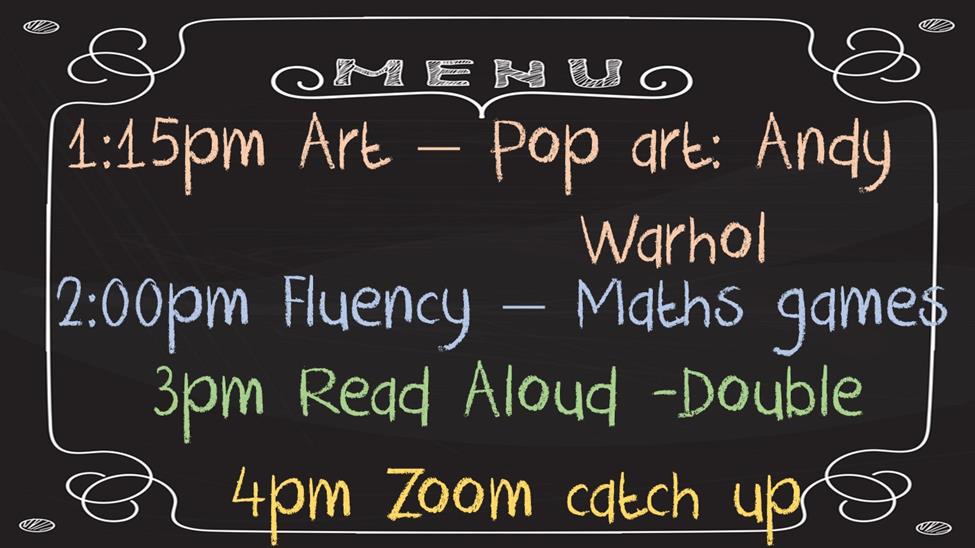 MENU
1:15pm Art – Pop art: Andy
Warhol
2:00pm Fluency – Maths games
3pm Read Aloud -Double
4pm Zoom catch up